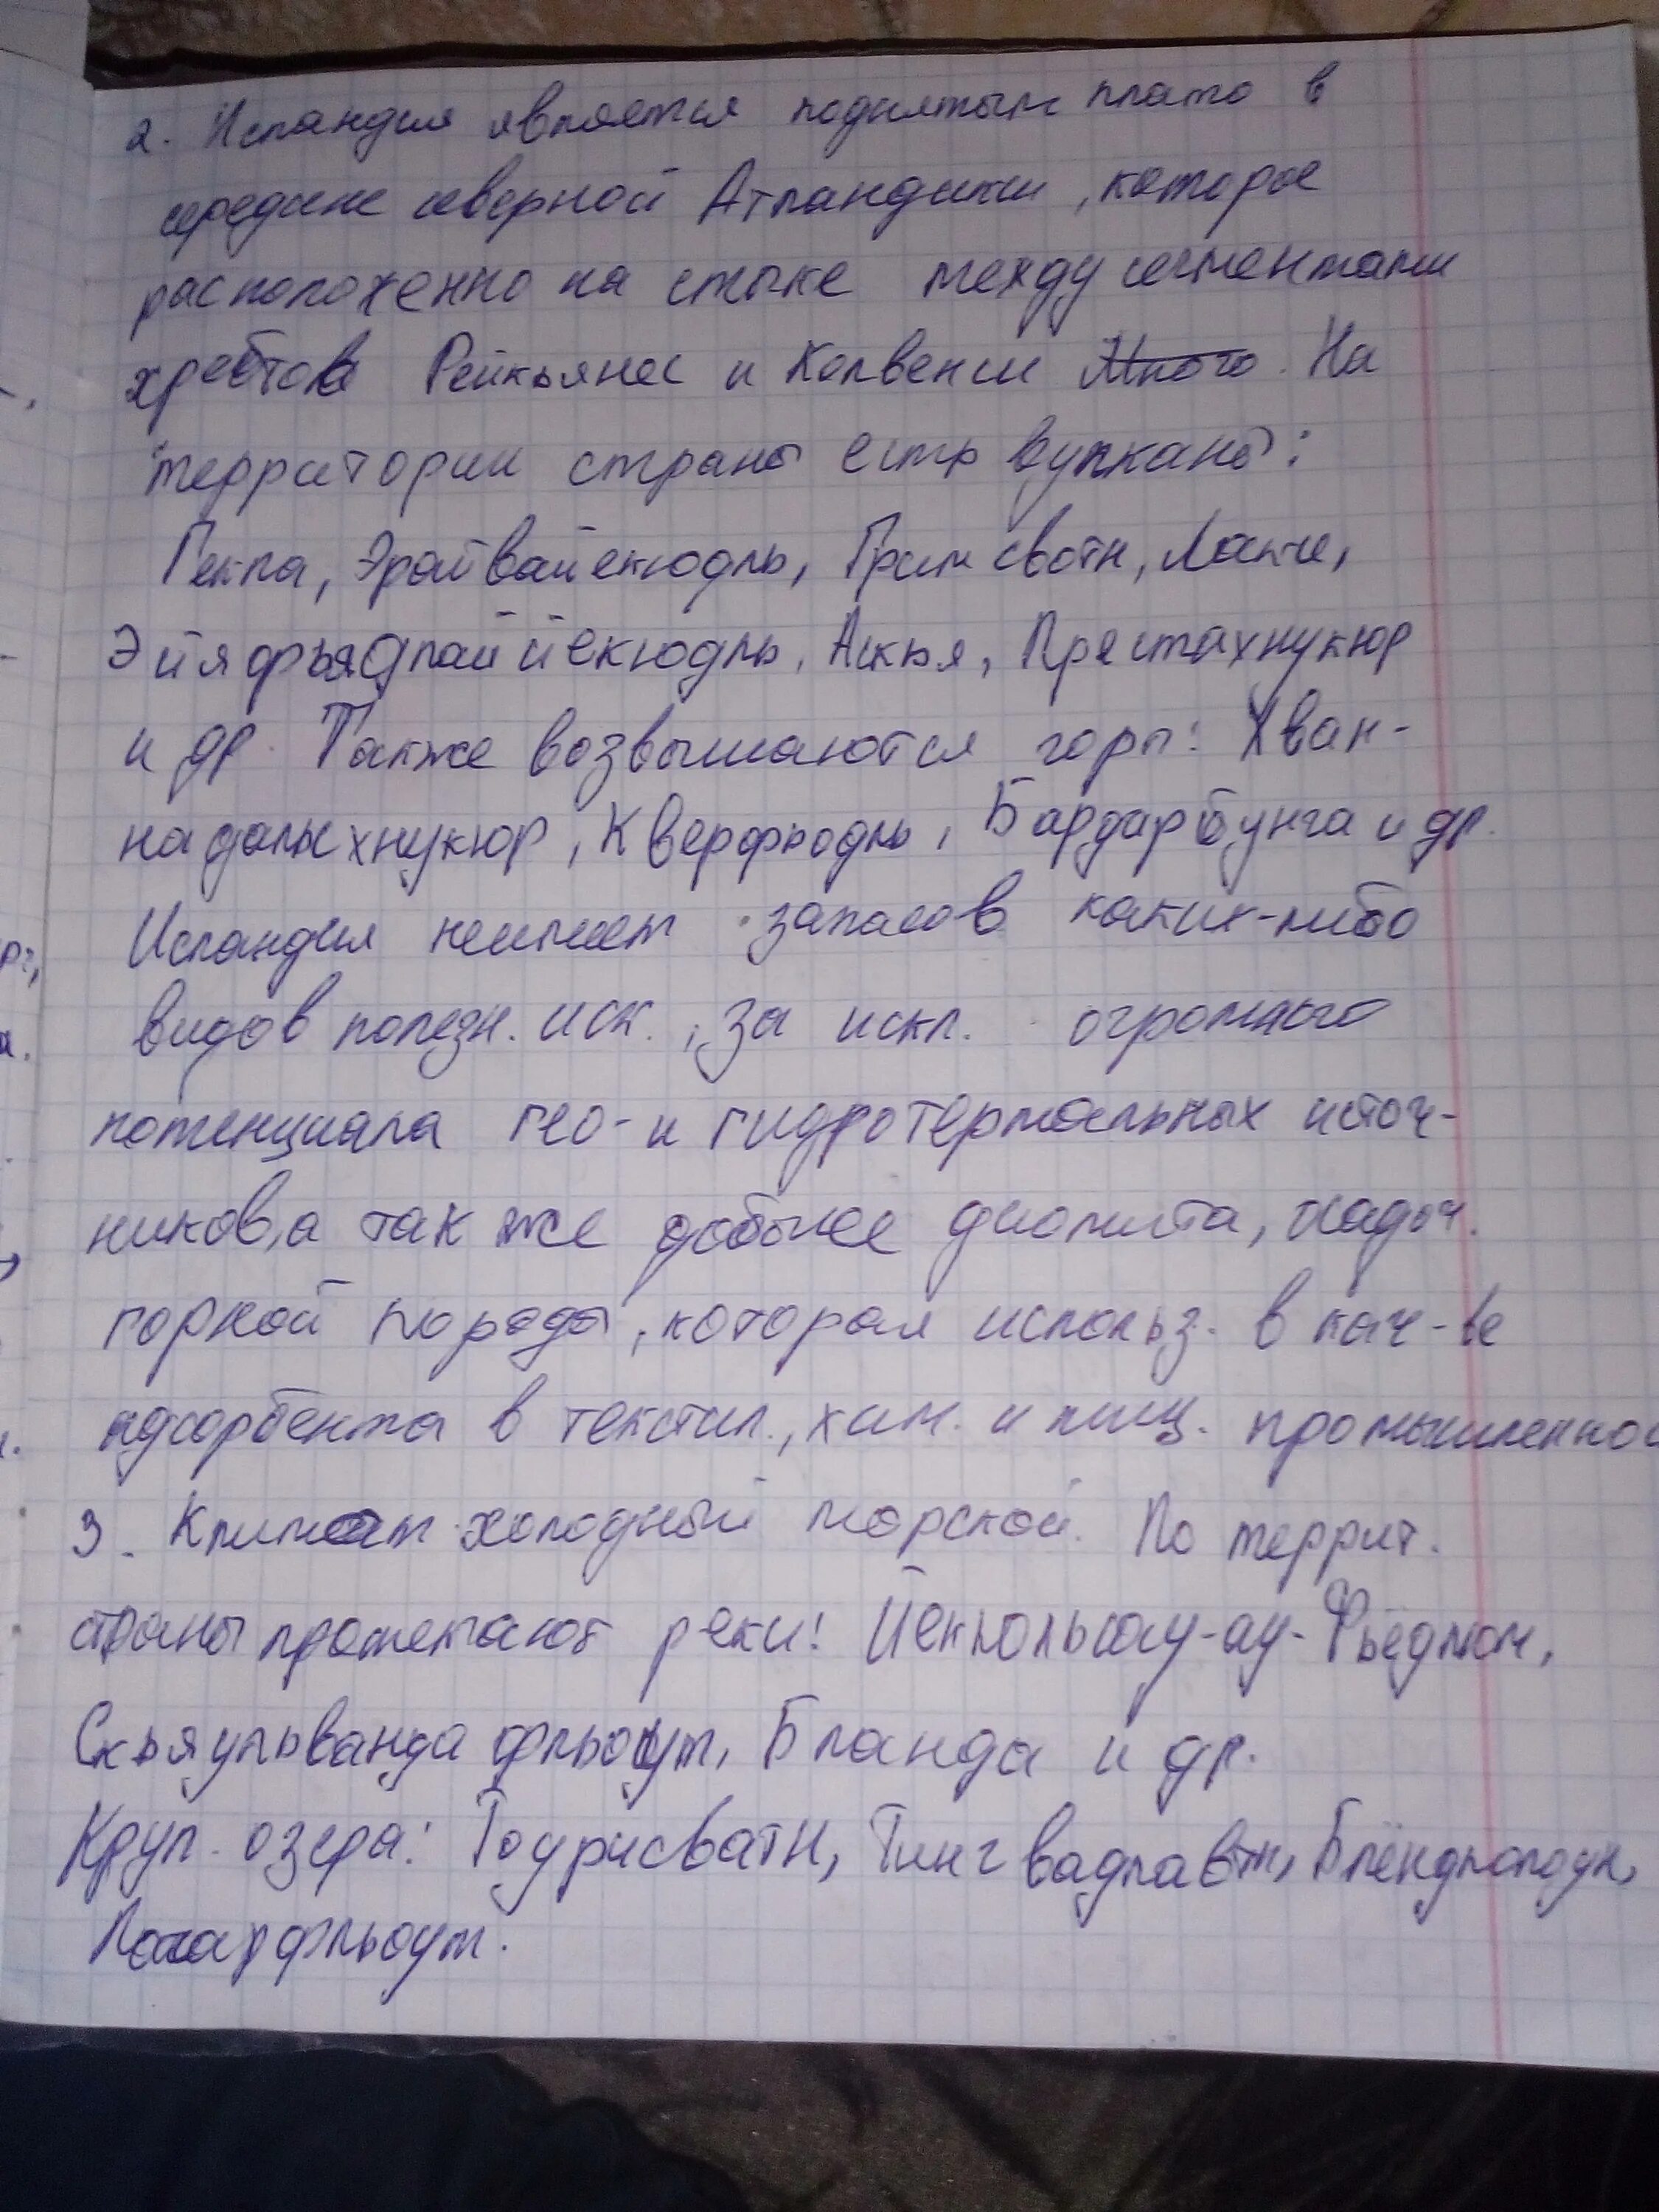 2. Исландия является поднятым плато в
середине северной Атландики, которое
расположенно на стыке между сегментами
хребтов Рейкьянес и Колбенси Много. На
территории страны есть вулканы:
Гекла, Эрайвайекюдль, Гримсвотн, Лакие,
Эйяфьядлаййекюдль, Аскья, Престахнукюр
и др. Также возвышаются горы: Хван-
надальсхнукюр, Кверфьюдль, Бардарбунга и др.
Исландия неимеет запасов каких-либо
видов полезн. иск., за искл. огромного
потенциала гео- и гидротермальных источ-
ников, а так же добыче диомита,
горной породы, которая использ. в кач-ве
адсорбента в текстил., хим. и пищ. промышленнос
3. Климат холодный морской. По террит.
страны протекают реки: Йёкюльсау-ау-Фьёдлюм,
Скьяульвандафльоут, Бланда и др.
Круп. озера: Тоурисватн, Тингвадлаватн, Блёндюлоудн,
Лагарфльоут.